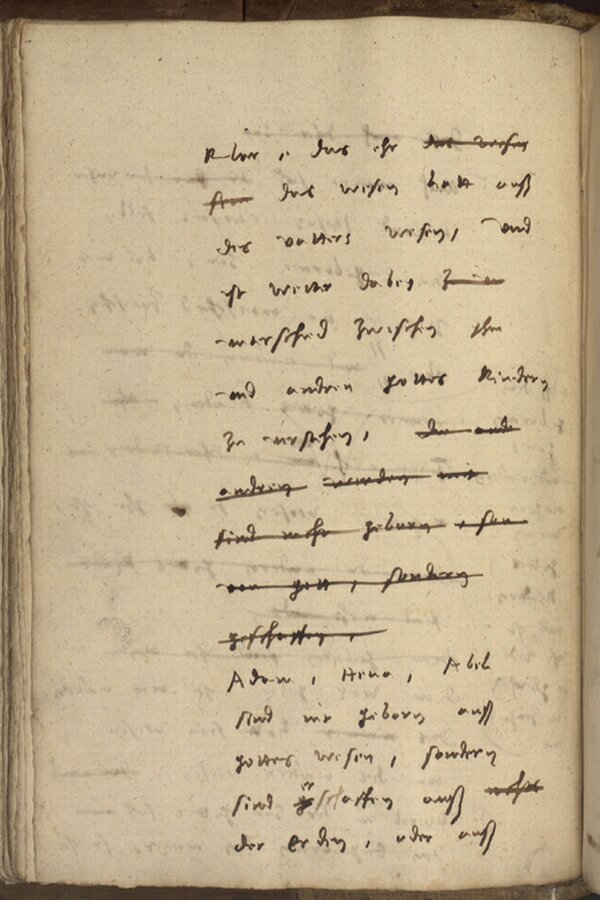 Aber, das ehr das wesen
das wesen hatt auß
des vatters wesen, und
ist weiter dabey
unterscheid zwischen ihm
und andren gottes kindern
zu verstehen, die ande
andren werden mit
sind nicht geborn, son
von gott, sondern
geschaffen,
Adam, Heua, Abel
sind nit geborn auß
gottes wesen, sondern
sind geschaffen auß nichts
der Erden, oder auß